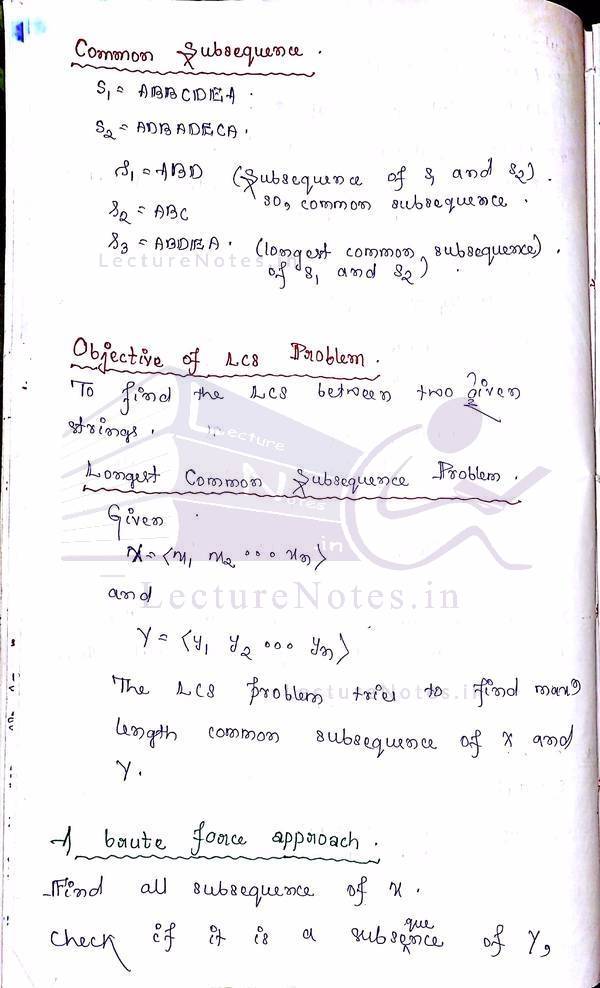 Common Subsequence.
S1 = ABBCDEA.
S2 = ADBADECA.
S1 = ABD (Subsequence of S1 and S2).
so, common subsequence.
S2 = ABC
S3 = ABDEA. (longest common subsequence)
of S1 and S2)
LectureNotes.in
Objective of LCS Problem.
To find the LCS between two given
strings.
Lecture
Notes
.in
Longest Common Subsequence Problem.
Given
X = <x1, x2 ... xn>
and
LectureNotes.in
Y = <y1 y2 ... yn>
The LCS problem tries to find max
LectureNotes.in
length common subsequence of X and
Y.
A brute force approach.
Find all subsequence of X.
Check if it is a subsequence of Y,